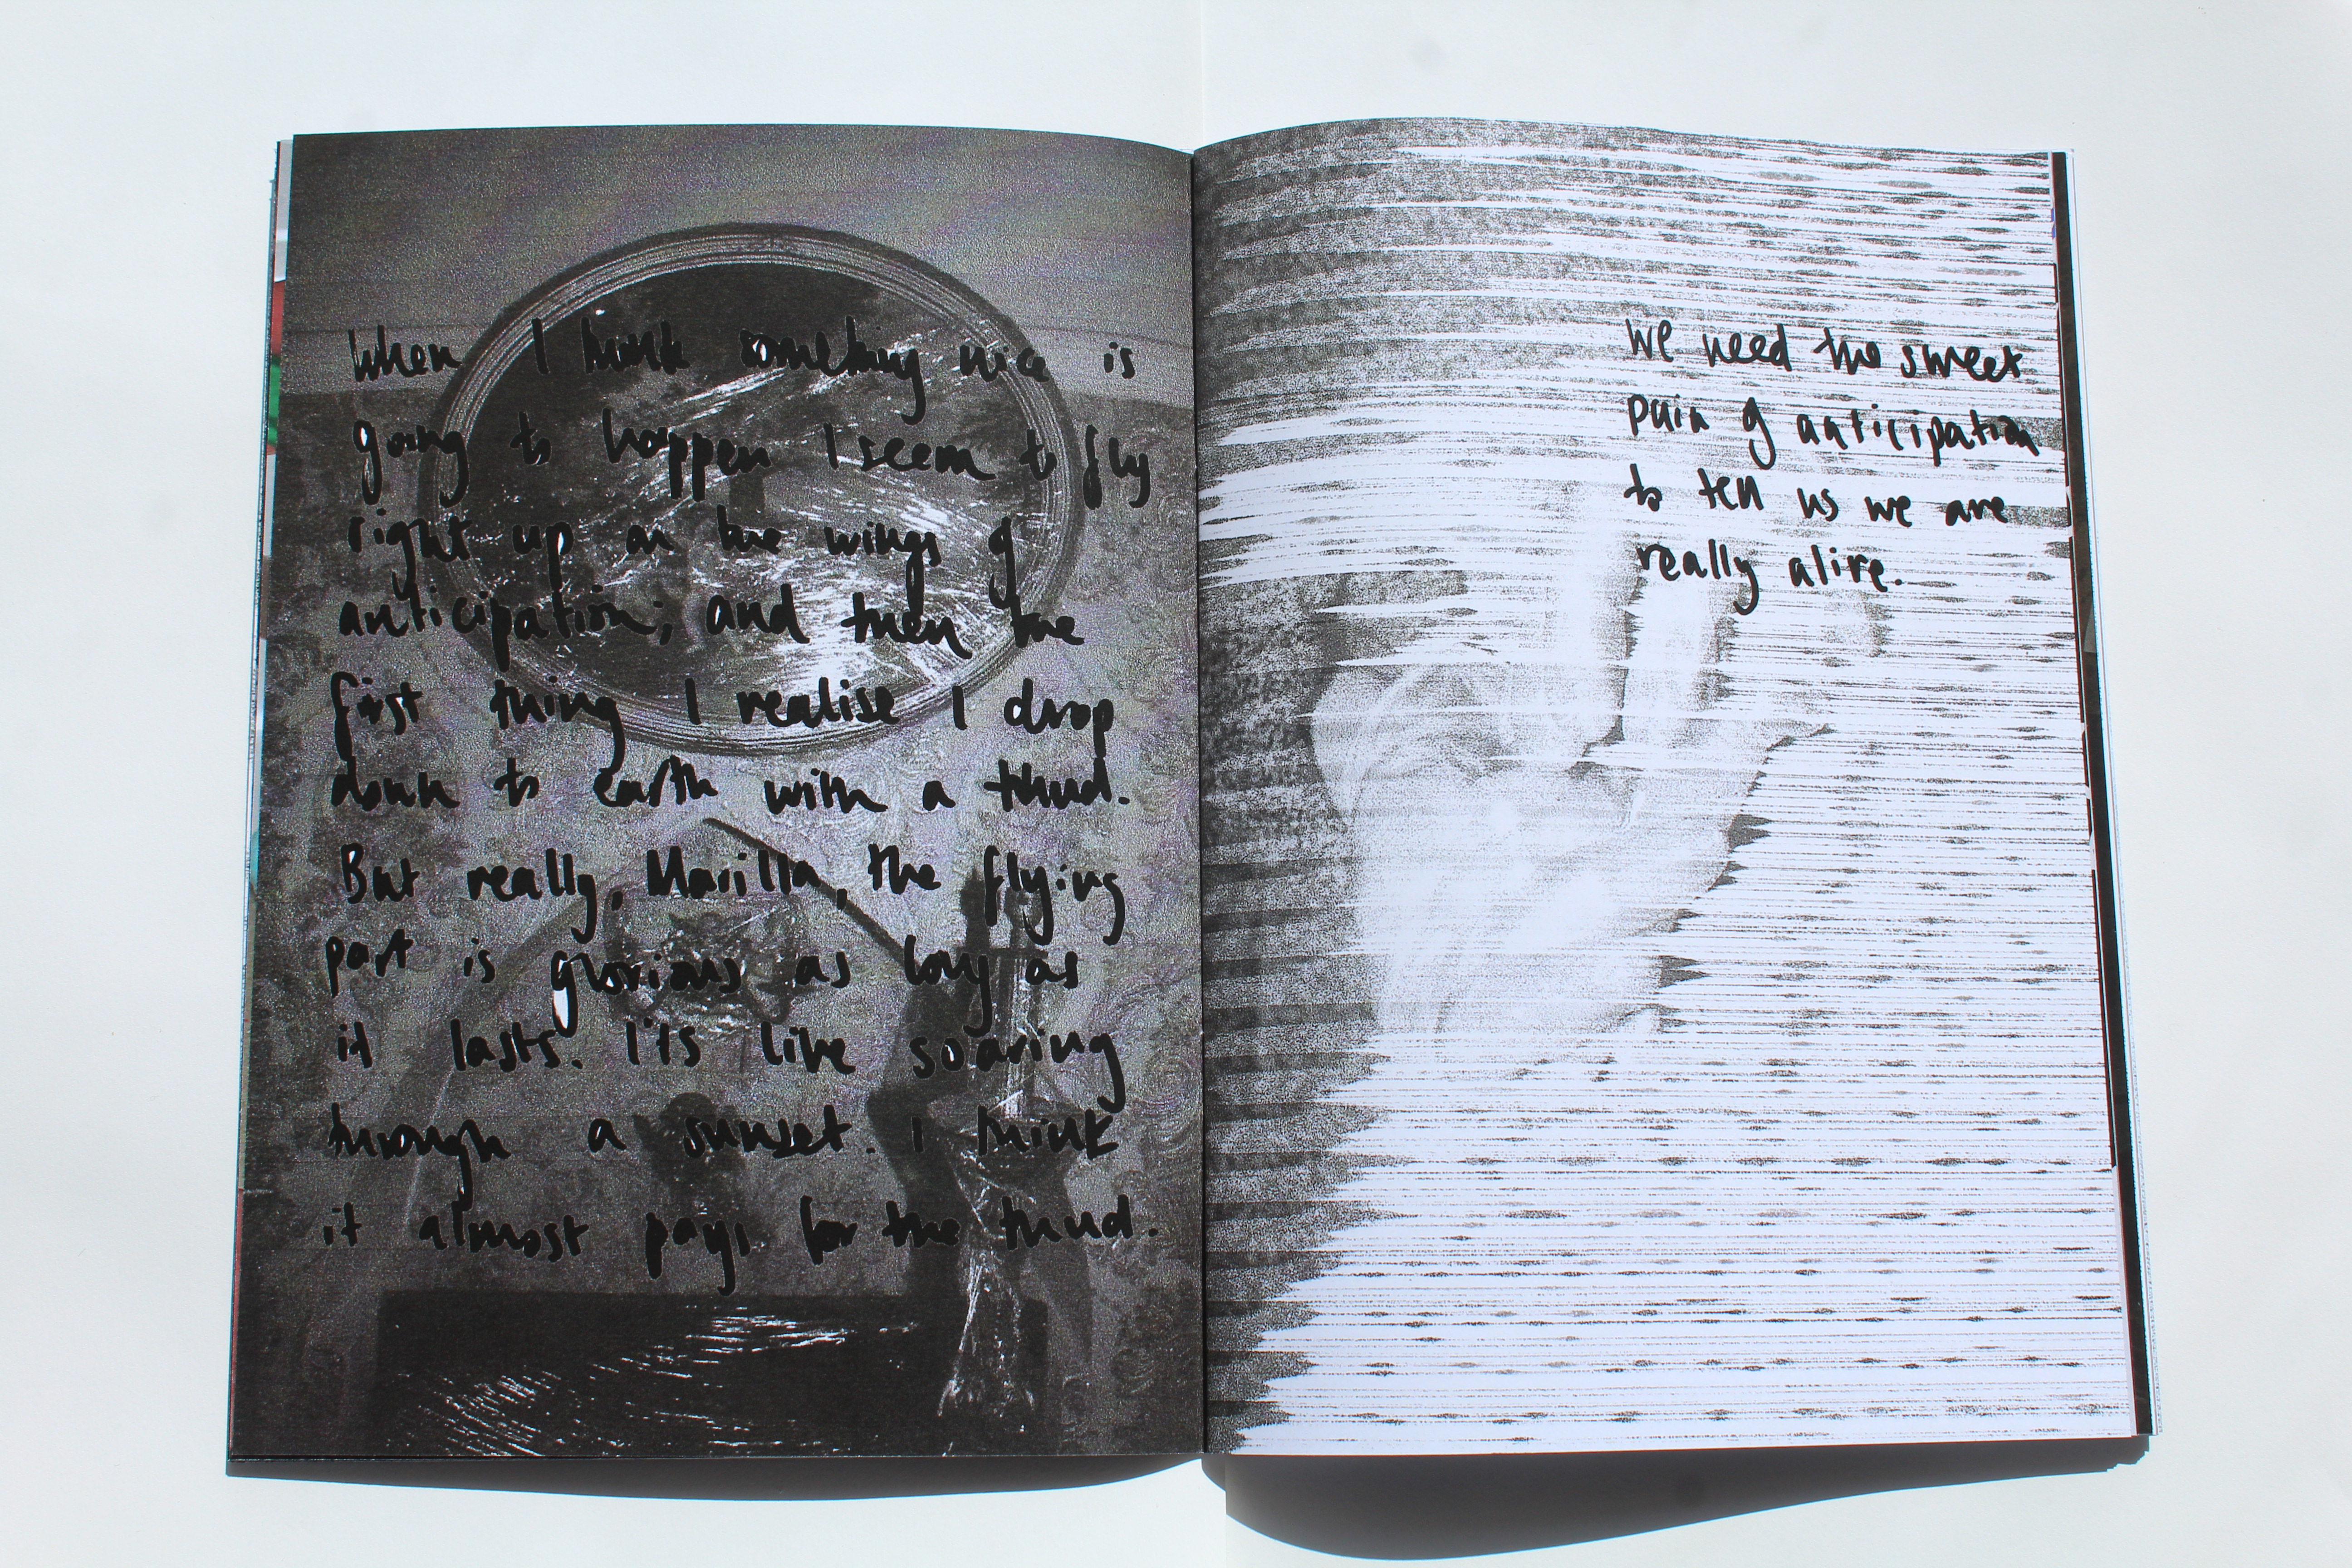 When I think something nice is
going to happen I seem to fly
right up on the wings of
anticipation; and then the
first thing I realise I drop
down to earth with a thud.
But really, Marilla, the flying
part is glorious as long as
it lasts. It's like soaring
through a sunset. I think
it almost pays for the thud.
We need the sweet
pain of anticipation
to tell us we are
really alive.